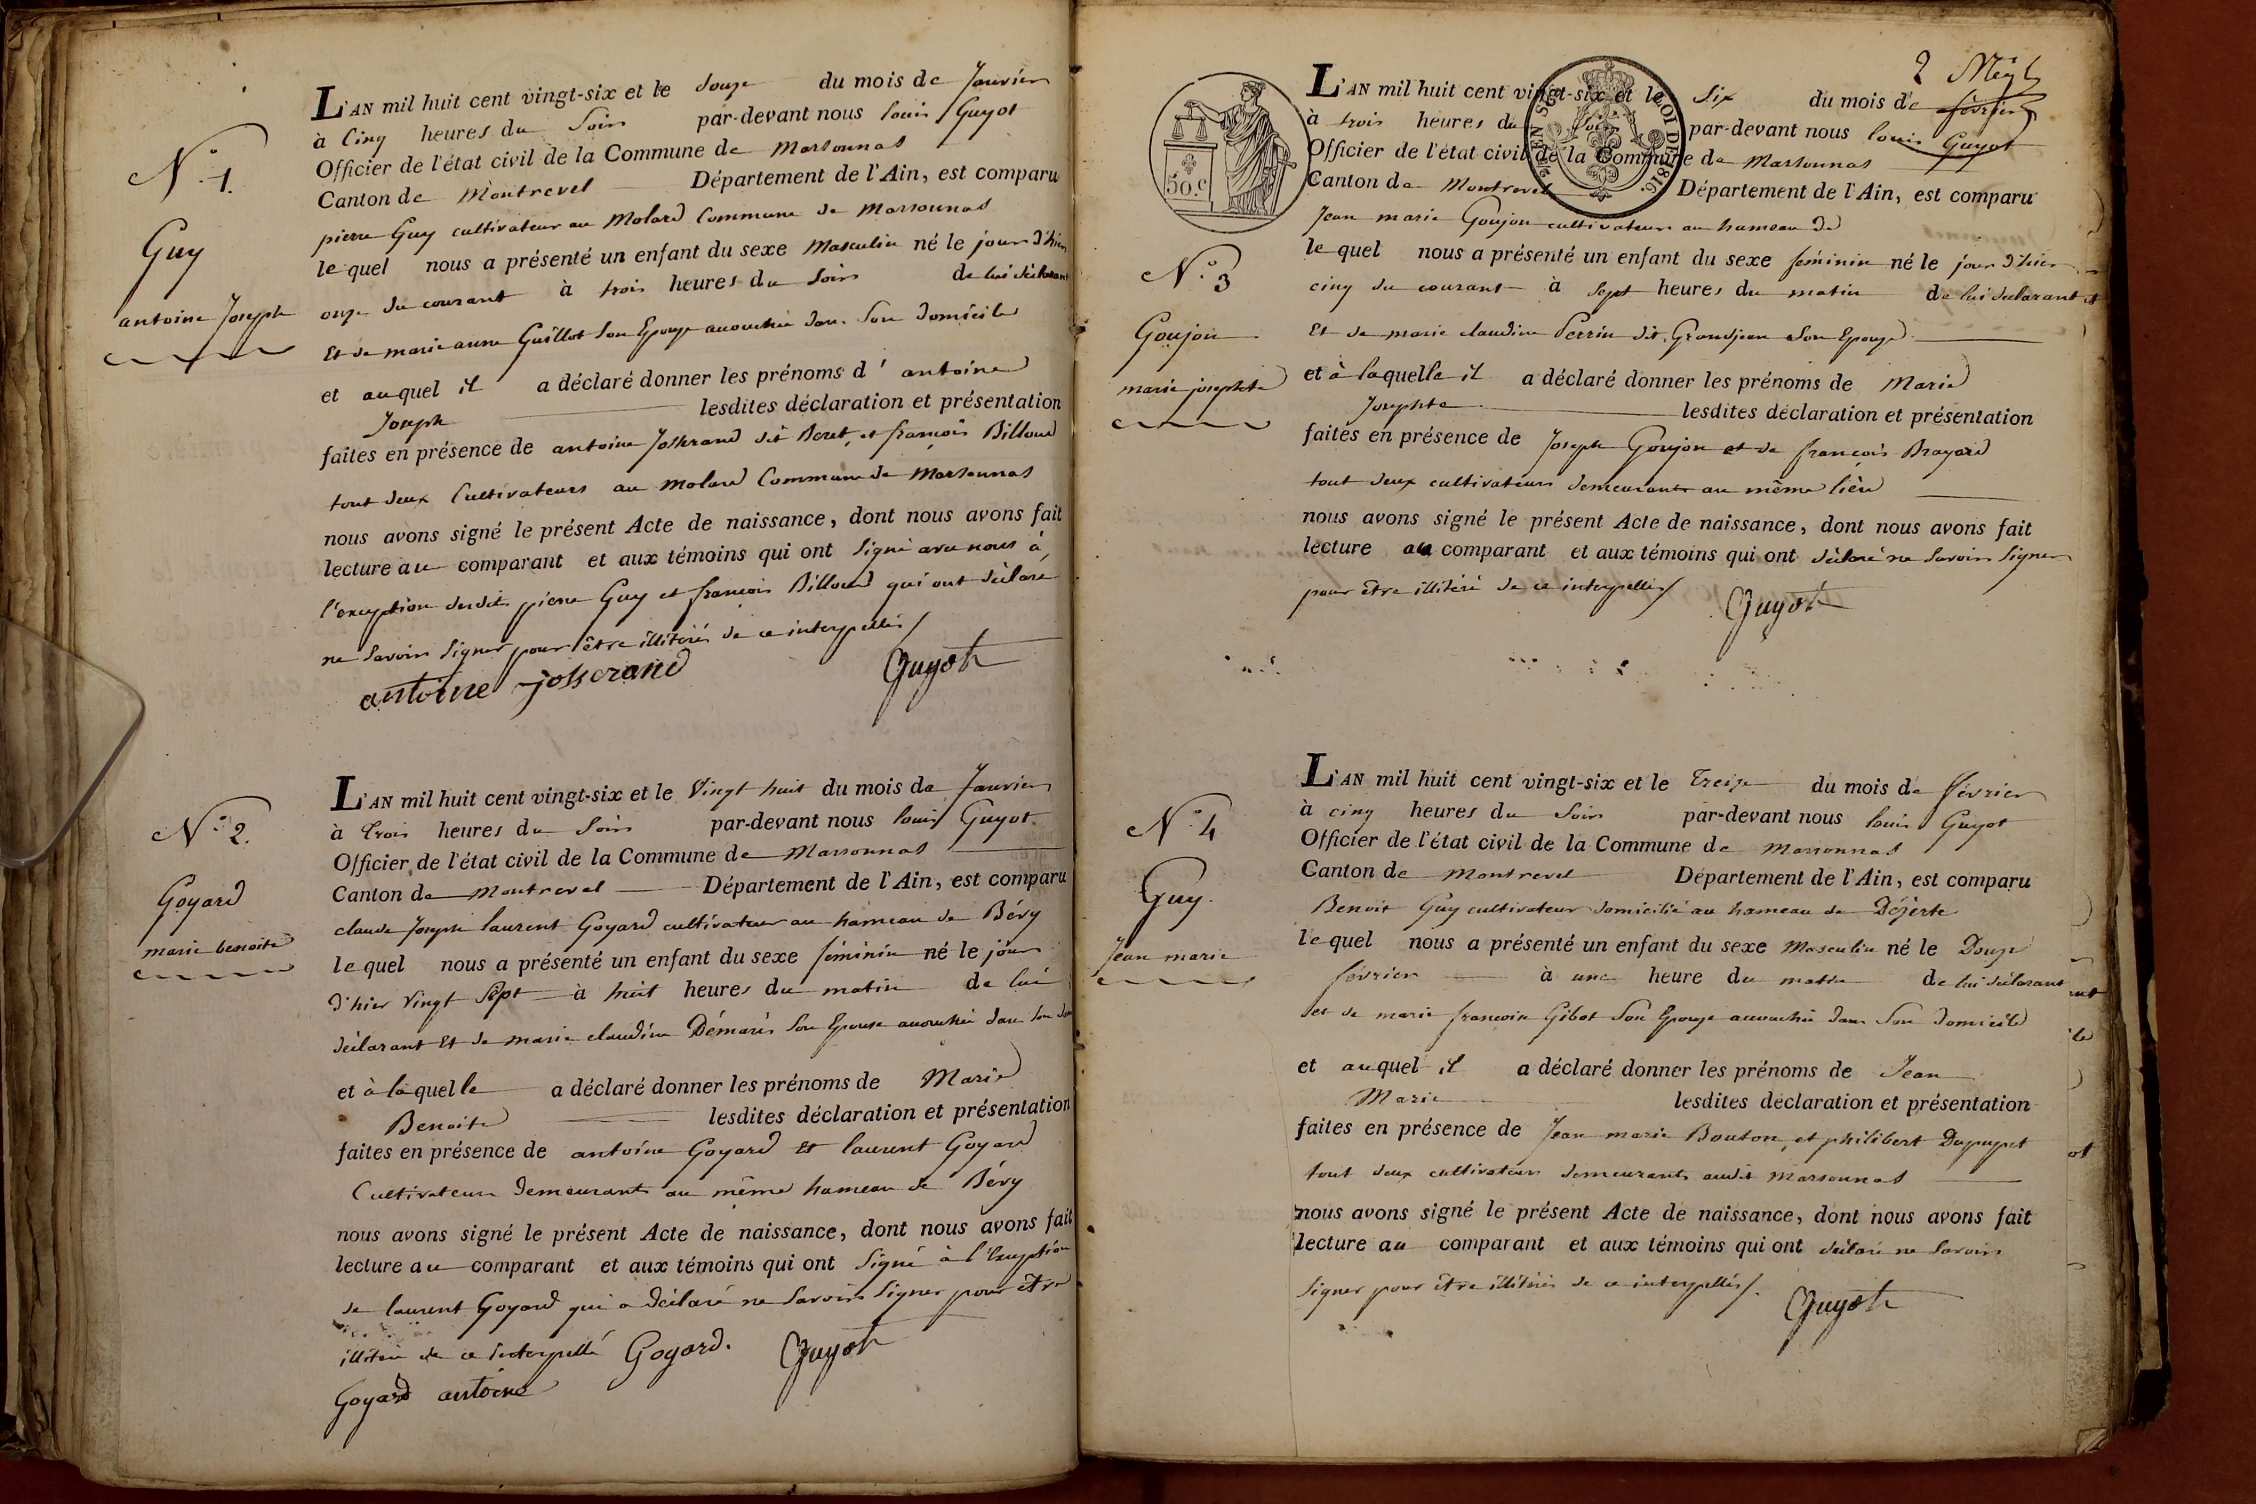 N.° 1.
Guy
antoine Joseph
L'AN mil huit cent vingt-six et le Douze du mois de Janvier
à Cinq heures du Soir par-devant nous louis Guyot
Officier de l'état civil de la Commune de Marsonnas
Canton de Montrevel Département de l'Ain, est comparu
pierre Guy cultivateur au Molard Commune de Marsonnas
lequel nous a présenté un enfant du sexe Masculin né le jour d'hier
onze du courant à trois heures du Soir de lui déclarant
Et de marie anne Guillot Son Epouze accouchée dans Son domicile
et auquel il a déclaré donner les prénoms d' antoine
Joseph lesdites déclaration et présentation
faites en présence de antoine Josserand dit Beret, et françois Billoud
tout deux Cultivateurs au Molard Commune de Marsonnas
nous avons signé le présent Acte de naissance, dont nous avons fait
lecture au comparant et aux témoins qui ont Signé avec nous à
l'exception desdits pierre Guy et françois Billoud qui ont déclaré
ne Savoir Signer pour être illitérés de ce interpellés /
antoine josserand Guyot
N.° 2.
Goyard
marie benoite
L'AN mil huit cent vingt-six et le Vingt huit du mois de Janvier
à trois heures du Soir par-devant nous louis Guyot.
Officier de l'état civil de la Commune de Marsonnas
Canton de Montrevel Département de l'Ain, est comparu
claude Joseph laurent Goyard cultivateur au hameau de Bévy
lequel nous a présenté un enfant du sexe féminin né le jour
d'hier Vingt Sept à huit heures du matin de lui
déclarant Et de marie claudine Démaris Son Epouse accouchée dans Son dom
et à laquelle a déclaré donner les prénoms de Marie
Benoite lesdites déclaration et présentation
faites en présence de antoine Goyard Et laurent Goyard
Cultivateurs demeurants au même hameau de Bévy
nous avons signé le présent Acte de naissance, dont nous avons fait
lecture au comparant et aux témoins qui ont Signé à l'Exception
de laurent Goyard qui a déclaré ne Savoir Signer pour être
illitéré de ce interpellé Goyard. Guyot
Goyard antoine
2
50.C
EN SUS
LOI DE 1816.
N.° 3
Goujon
marie josephte
L'AN mil huit cent vingt-six et le Six du mois de février
à trois heures du Soir par-devant nous louis Guyot
Officier de l'état civil de la Commune de Marsonnas
Canton de Montrevel Département de l'Ain, est comparu
Jean marie Goujon cultivateur au hameau de
lequel nous a présenté un enfant du sexe féminin né le jour d'hier
cinq du courant à Sept heures du matin de lui déclarant et
Et de marie claudine Perrin dit Grandjean Son Epouze
et à laquelle il a déclaré donner les prénoms de Marie
Josephte lesdites déclaration et présentation
faites en présence de Joseph Goujon et de françois Brayard
tout deux cultivateurs demeurants au même lieu
nous avons signé le présent Acte de naissance, dont nous avons fait
lecture au comparant et aux témoins qui ont déclaré ne Savoir Signer
pour être illitéré de ce interpellés /
Guyot
N.° 4
Guy.
Jean marie
L'AN mil huit cent vingt-six et le Treize du mois de février
à cinq heures du Soir par-devant nous louis Guyot
Officier de l'état civil de la Commune de Marsonnas
Canton de Montrevel Département de l'Ain, est comparu
Benoit Guy cultivateur domicilié au hameau de
lequel nous a présenté un enfant du sexe Masculin né le Douze
février à une heure du matin de lui déclarant
et de marie françoise Gibot Son Epouze accouchée dans Son domicile
et auquel il a déclaré donner les prénoms de Jean
Marie lesdites déclaration et présentation
faites en présence de Jean marie Bouton, et philibert Dupupet
tout deux cultivateurs demeurants audit Marsonnas
nous avons signé le présent Acte de naissance, dont nous avons fait
lecture au comparant et aux témoins qui ont déclaré ne Savoir
Signer pour être illitérés de ce interpellés /.
Guyot